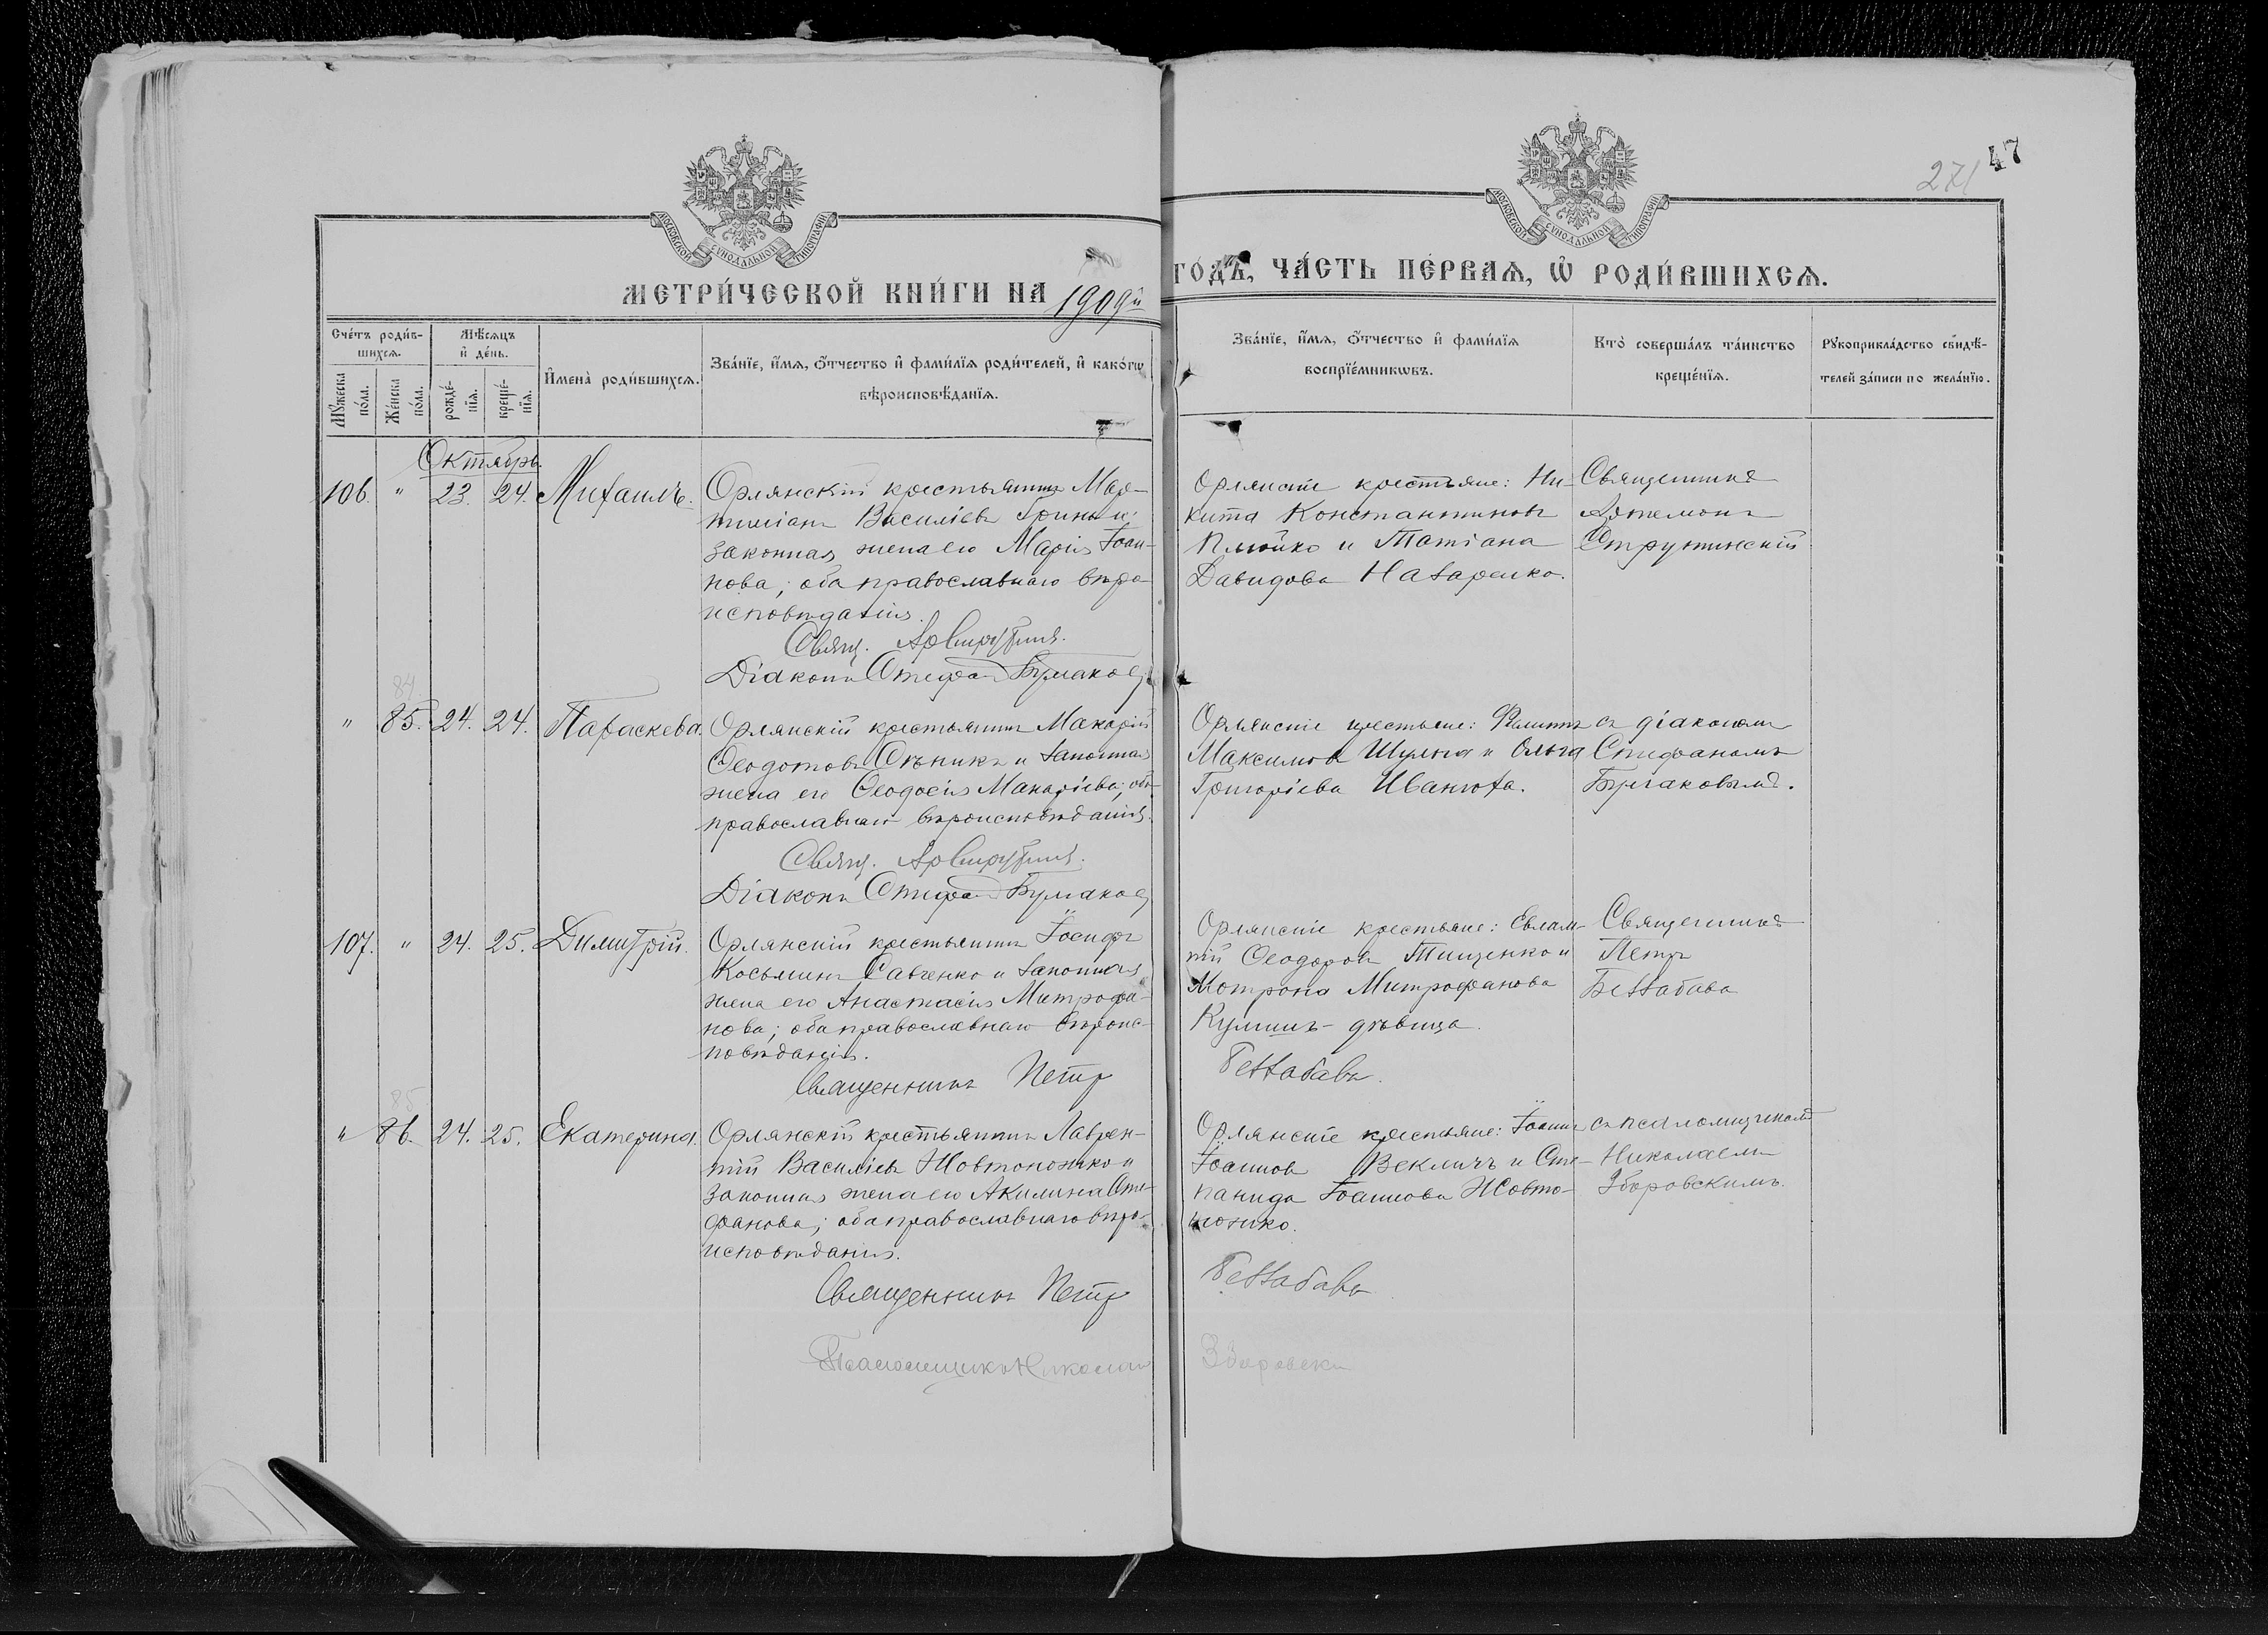 47
271
МОСКОВСКОЙ СѴНОДАЛЬНОЙ ТИПОГРАФІИ
МОСКОВСКОЙ СѴНОДАЛЬНОЙ ТИПОГРАФІИ
МЕТРИ́ЧЕСКОЙ КНИ́ГИ НА 1909й
ГО́ДЪ, ЧА́СТЬ ПЕ́РВАѦ, Ѡ РОДИ́ВШИХСѦ.
Сче́тъ роди́в-
шихсѧ.
Мꙋ́жеска по́ла.
Же́нска по́ла.
Мѣ́сѧцъ
и҆ де́нь.
рожде́-
нїѧ.
креще́-
нїѧ.
И҆мена̀ роди́вшихсѧ.
Зва́нїе, и҆́мѧ, ѻ҆́тчество и҆ фами́лїѧ роди́телей, и҆ како́гѡ
вѣроисповѣ́данїѧ.
Зва́нїе, и҆́мѧ, ѻ҆́тчество и҆ фами́лїѧ
воспрїе́мникѡвъ.
Кто̀ соверша́лъ та́инство
креще́нїѧ.
Рꙋкоприкла́дство свидѣ́-
телей за́писи по жела́нїю.
Октябрь.
106. " 23. 24. Михаилъ.
Орлянскій крестьянинъ Мар-
тиніанъ Василіевъ и
законная жена его Марія Іоан-
нова; оба православнаго вѣро-
исповѣданія.
Свящ. Ар Струтинс.
Діаконъ Стефан Булгаков
Орлянскіе крестьяне: Ни-
кита Константиновъ
Плюйко и Татіана
Давидова Назаренко.
Священникъ
Артемонъ
Струтинскій
84
" 85. 24. 24. Параскева.
Орлянскій крестьянинъ Макарій
Ѳеодотовъ Олѣникъ и законная
жена его Ѳеодосія Макаріева; оба
православнаго вѣроисповѣданія.
Свящ. Ар Струтинс.
Діаконъ Стефан Булгаков
Орлянскіе крестьяне: Филиппъ
Максимовъ Шульга и Ольга
Григоріева Иванюха.
съ діакономъ
Стефаномъ
Булгаковымъ.
107. " 24. 25. Димитрій.
Орлянскій крестьянинъ Іосифъ
Косьминъ Савченко и законная
жена его Анастасія Митрофа-
нова; оба православнаго вѣроис-
повѣданія.
Священникъ Петр Беззабава.
Орлянскіе крестьяне: Евлам-
пій Ѳеодоровъ Тищенко и
Мотрона Митрофанова
Кулишъ - дѣвица.
Священникъ
Петръ
Беззабава
85
" 86. 24. 25. Екатерина.
Орлянскій крестьянинъ Лаврен-
тій Василіевъ Жовтоножко и
законная жена его Акилина Сте-
фанова; оба православнаго вѣро-
исповѣданія.
Священникъ Петр Беззабава
Псаломщикъ Николай Зборовски
Орлянскіе крестьяне: Іоаннъ
Іоанновъ Векличъ и Сте-
панида Іоаннова Жовто-
ножко.
съ псаломщикомъ
Николаемъ
Зборовскимъ.